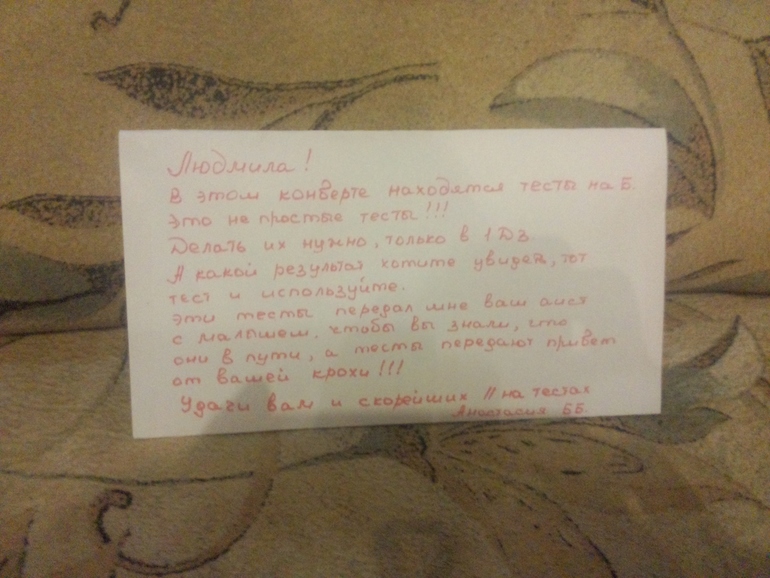 Людмила!
В этом конверте находятся тесты на Б.
Это не простые тесты!!!
Делать их нужно, только в 1 ДЗ.
А какой результат хотите увидеть, тот
тест и используйте.
Эти тесты передал мне ваш аист
с малышем. чтобы вы знали, что
они в пути, а тесты передают привет
от вашей крохи!!!
Удачи вам и скорейших // на тестах
Анастасия ББ.